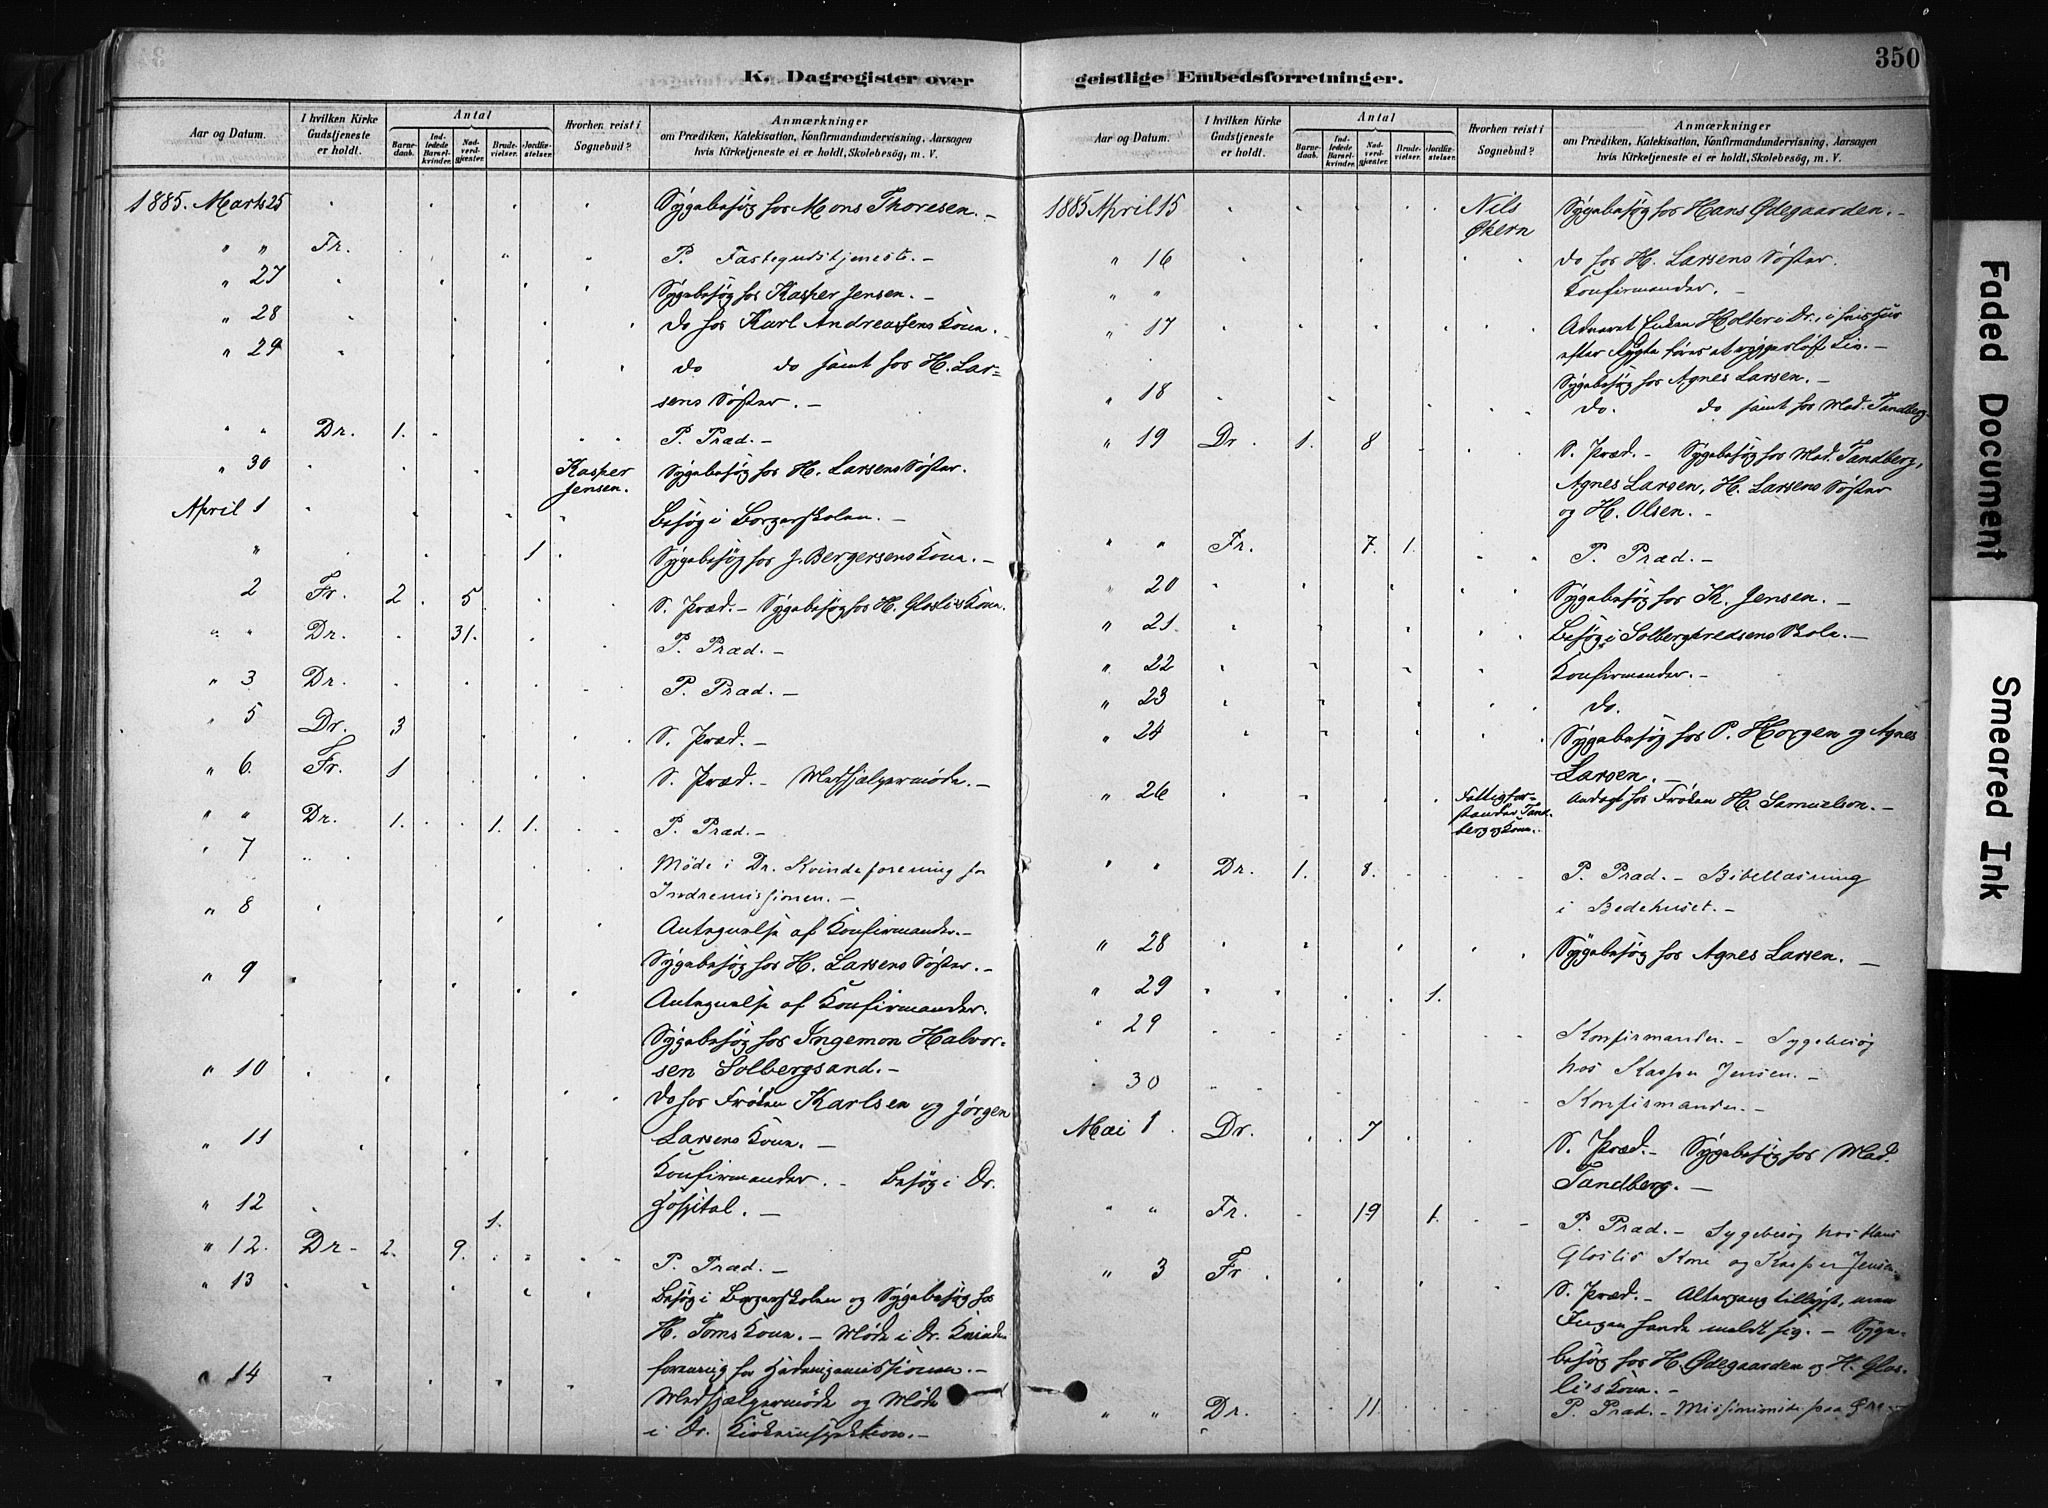 350
K. Dagregister over geistlige Embedsforretninger.
Aar og Datum.
I hvilken Kirke Gudstjeneste er holdt.
Antal
Barnedaab.
Indledede Barselkvinder.
Nadverdgjester.
Brudevielser.
Jordfæstelser.
Hvorhen reist i Sognebud?
Anmærkninger
om Prædiken, Katekisation, Konfirmandundervisning, Aarsagen
hvis Kirketjeneste ei er holdt, Skolebesøg, m. V.
1885. Marts 25 Sygebesøg hos Mons Thoresen. -
" " Fr. P. Fastegudstjeneste.
" 27 Sygebesøg hos Kasper Jensen. -
" 28 do hos Karl Andreassens Kone.
" 29 do do samt hos H. Lar-
sens Søster. -
" " Dr. 1. P. Præd. -
" 30 Kasper Jensen. Sygebesøg hos H. Larsens Søster.
April 1 Besøg i Borgerskolen. -
" 1 Sygebesøg hos J. Bergersens Kone. -
2 Fr. 2 5 S. Præd. - Sygebesøg hos H. Gloslis Kone.
" " Dr. 31. P. Præd. -
" 3 Dr. P. Præd. -
" 5 Dr. 3 S. Præd. -
" 6. Fr. 1 S. Præd. - Medhjælpermøde. -
" " Dr. 1. 1. 1. P. Præd. -
" 7 Møde i Dr. Kvindeforening for
Indremissionen. -
" 8 Antegnelse af Konfirmander. -
Sygebesøg hos H. Larsens Søster. -
" 9 Antegnelse af Konfirmander.
Sygebesøg hos Ingemon Halvor-
" 10 sen Solbergsand. -
do hos Frøken Karlsen og Jørgen
" 11 Larsens Kone. -
Konfirmander. - Besøg i Dr.
" 12 1. Hospital. -
" 12. Dr. 2. 9. P. Præd. -
" 13 Besøg i Borgerskolen og Sygebesøg hos
H. Toms Kone. - Møde i Dr. Kvinde
" 14 forening for Hedningemissionen. -
Medhjælpermøde og Møde
i Dr. Kirkeinspektion. -
Aar og Datum.
I hvilken Kirke Gudstjeneste er holdt.
Antal
Barnedaab.
Indledede Barselkvinder.
Nadverdgjester.
Brudevielser.
Jordfæstelser.
Hvorhen reist i Sognebud?
Anmærkninger
om Prædiken, Katekisation, Konfirmandundervisning, Aarsagen
hvis Kirketjeneste ei er holdt, Skolebesøg, m. V.
1885 April 15 Nils Økern Sygebesøg hos Hans Ødegaarden. -
" 16 do hos H. Larsens Søster.
" " Konfirmander. -
" 17 Advaret Enken Holter i Dr., i
efter
Sygebesøg hos Agnes Larsen. -
" 18 do. do samt hos Mad. Tandberg
" 19 Dr. 1. 8 S. Præd. - Sygebesøg hos Mad. Tandberg,
Agnes Larsen, H. Larsens Søster
og H. Olsen. -
" " Fr. 7. 1. P. Præd. -
" 20 Sygebesøg hos K. Jensen. -
" 21. Besøg i Solbergkredsens Skole. -
" 22 Konfirmander. -
" 23 do.
" 24 Sygebesøg hos P. Horgen og Agnes
Larsen. -
" 26 Fattigforstander Tandberg og Kone. Andagt hos Frøken H. Samuelsen. -
" " Dr. 1. 8. P. Præd. - Bibellæsning
i Bedehuset. -
" 28 Sygebesøg hos Agnes Larsen. -
" 29 1.
" 29 Konfirmander. - Sygebesøg
hos Kasper Jensen. -
30 Konfirmander. -
Mai 1 Dr. 7 S. Præd. - Sygebesøg hos Mad.
Tandberg. -
" " Fr. 19 1. P. Præd. - Sygebesøg hos Hans
Gloslis Kone og Kasper Jensen
" 3 Fr S. Præd. - Altergang tillyst, men
Ingen havde meldt sig. - Syge-
besøg hos H. Ødegaarden og H. Glos-
lis Kone. -
" " Dr. 11. P. Præd. -
Faded Document
Smeared Ink